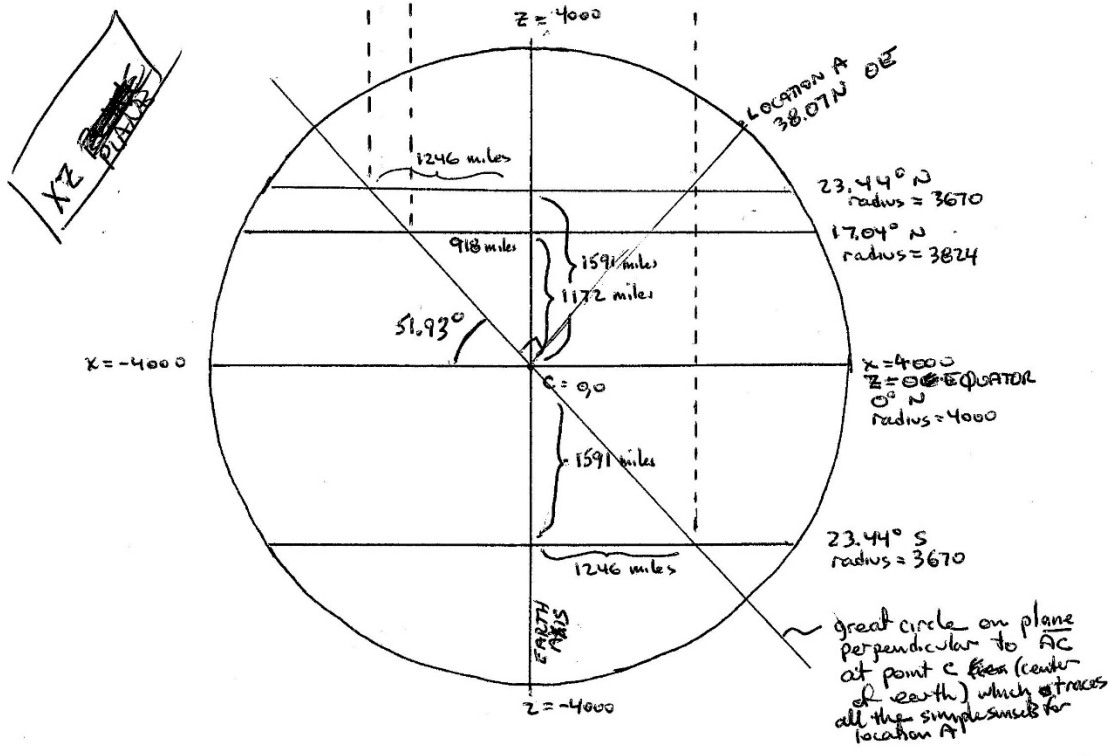 XZ
PLANE
Z = 4000
LOCATION A
38.07N 0E
1246 miles
23.44° N
radius = 3670
17.04° N
radius = 3824
918 miles
1591 miles
1172 miles
51.93°
X = -4000
C = 0,0
x = 4000
Z = 0 EQUATOR
0° N
radius = 4000
1591 miles
23.44° S
radius = 3670
1246 miles
EARTH
AXIS
great circle on plane
perpendicular to AC
at point C (center
of earth) which traces
all the simple sunsets for
location A
Z = -4000